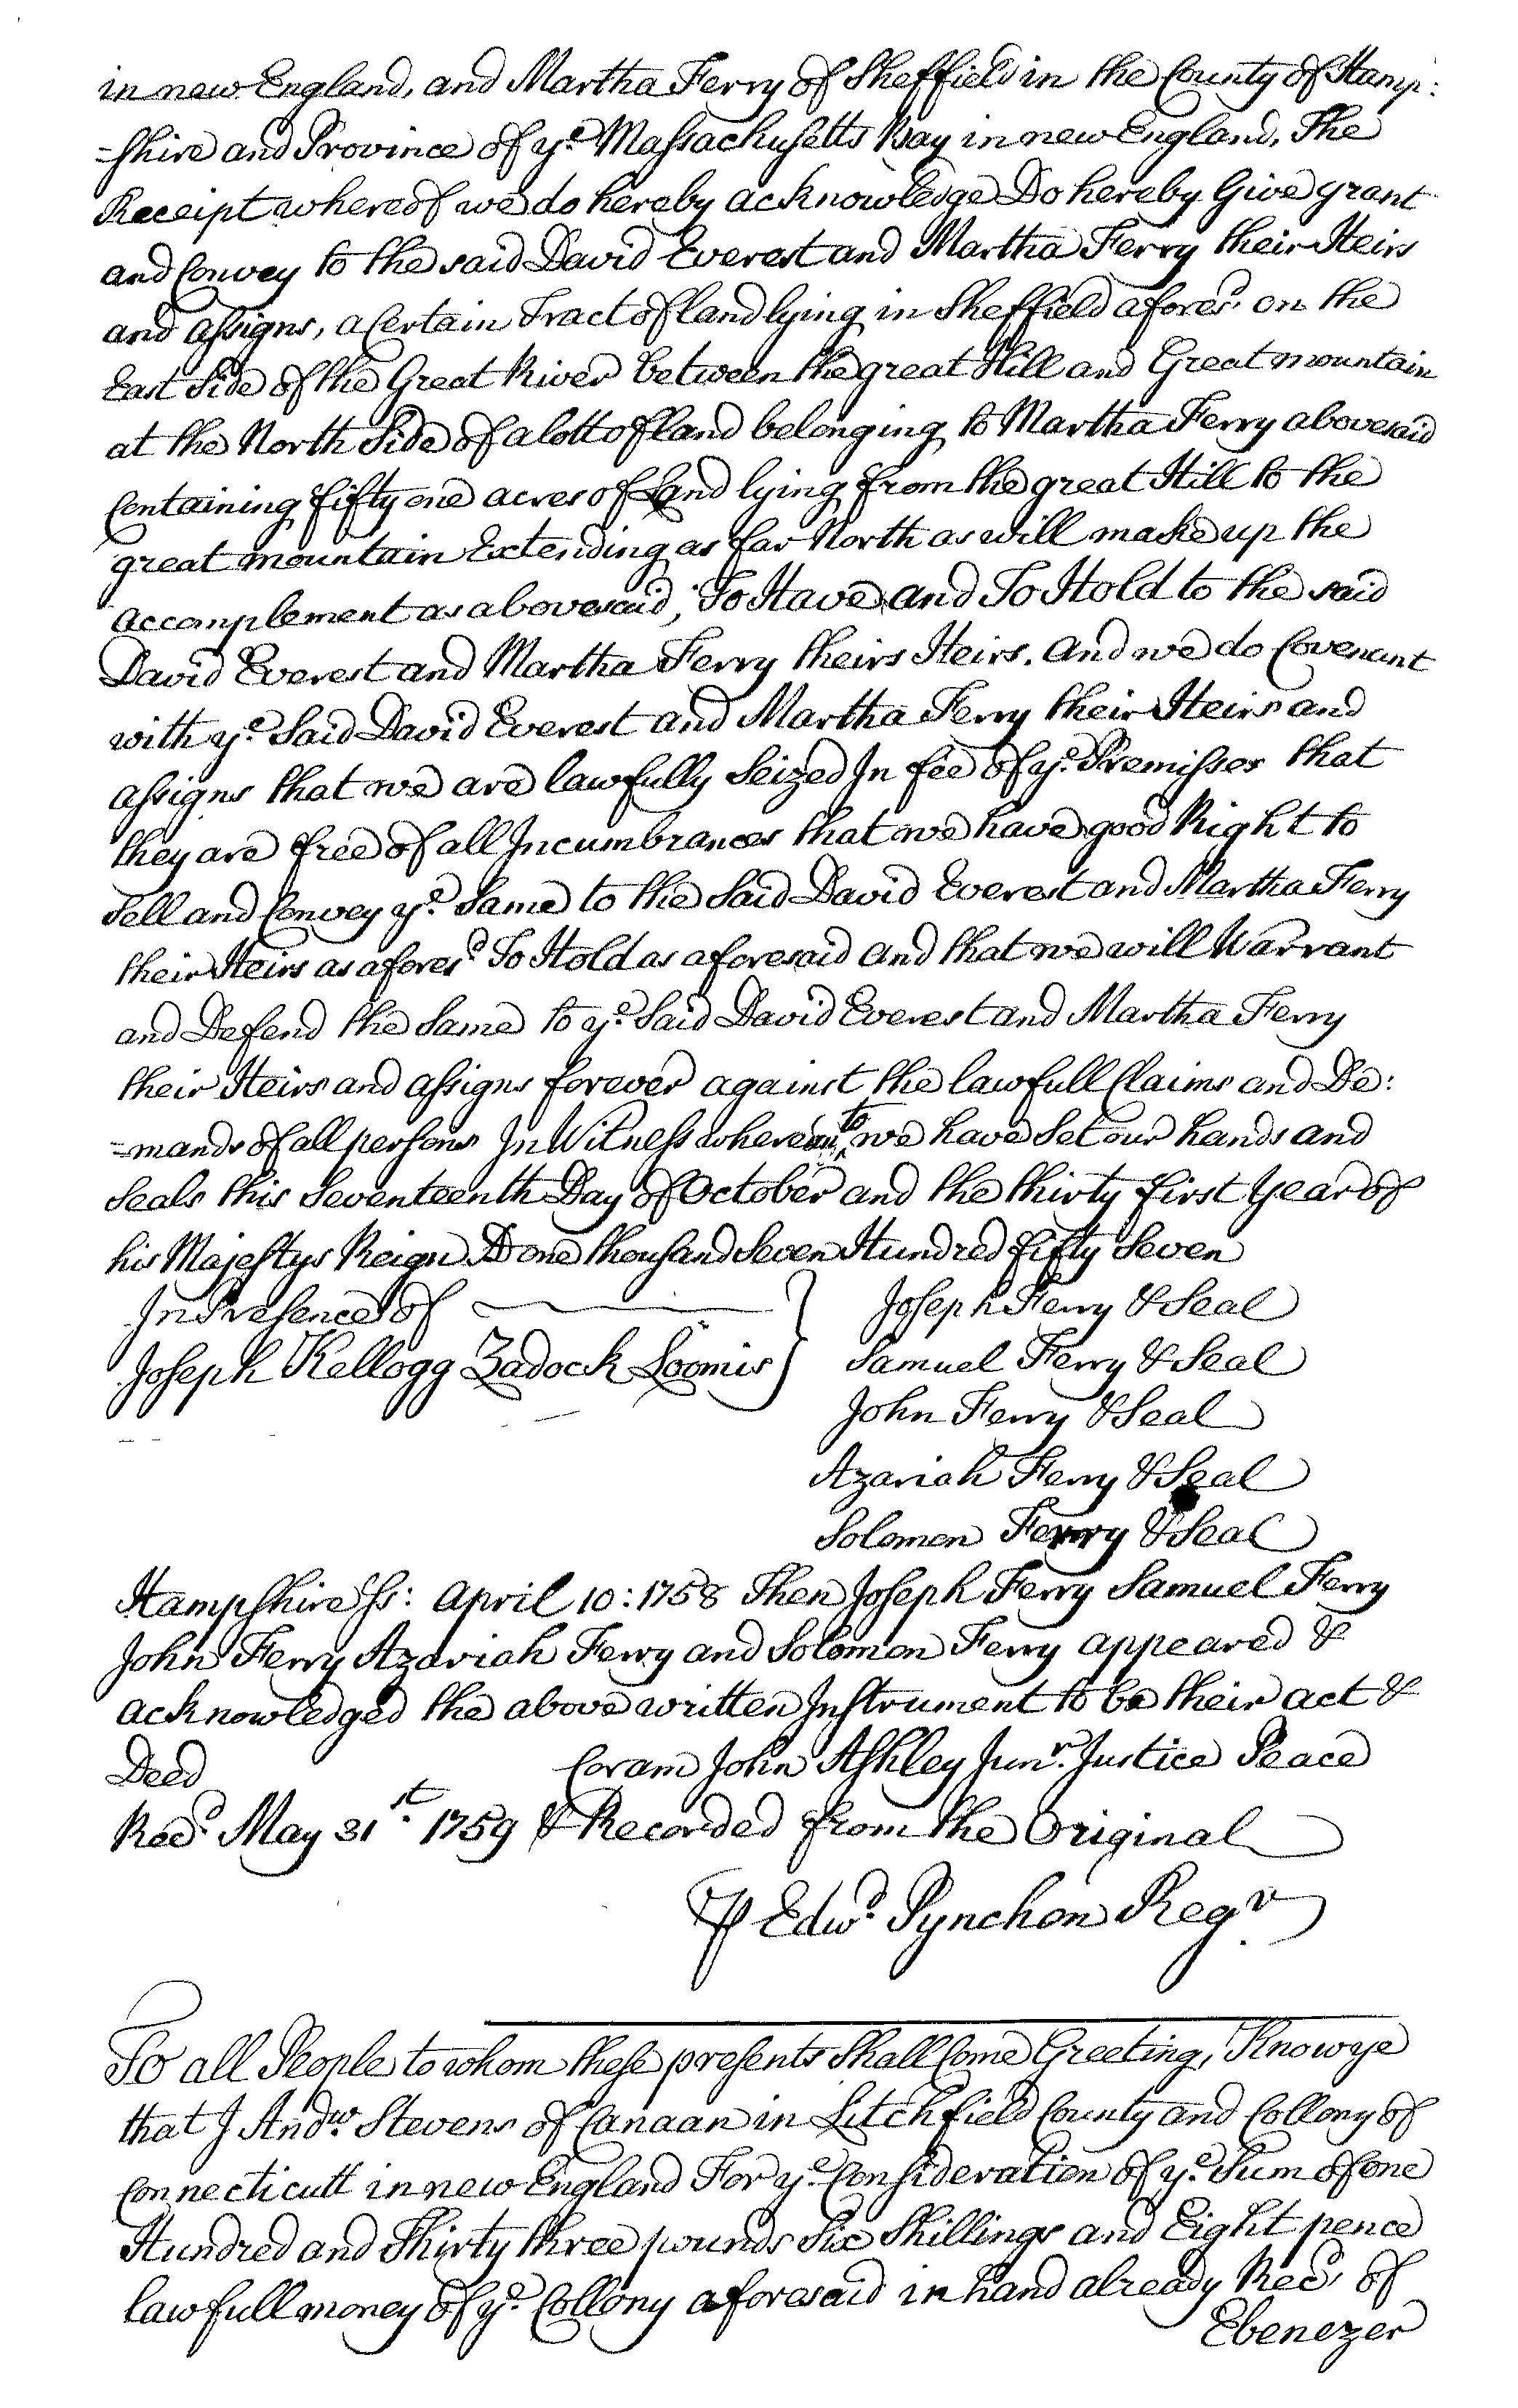 in new England, and Martha Ferry of Sheffield in the County of Hamp:
=shire and Province of ye. Massachusetts Bay in new England, The
Receipt whereof we do hereby acknowledge Do hereby Give grant
and Convey to the said David Everest and Martha Ferry their Heirs
and assigns, a Certain Tract of land lying in Sheffield afores.d on the
East Side of the Great River between the great Hill and Great mountain
at the North Side of a lott of land belonging to Martha Ferry abovesaid
Containing fifty one acres of Land lying from the great Hill to the
great mountain Extending as far North as will make up the
accomplement as abovesaid, To Have and To Hold to the said
David Everest and Martha Ferry theirs Heirs. And we do Covenant
with ye. Said David Everest and Martha Ferry their Heirs and
assigns that we are lawfully Seized In fee of ye. Premisses that
they are free of all Incumbrances that we have good Right to
Sell and Convey ye. Same to the Said David Everest and Martha Ferry
their Heirs as afores.d To Hold as aforesaid And that we will Warrant
and Defend the Same to ye. Said David Everest and Martha Ferry
their Heirs and assigns forever against the lawfull Claims and De:
=mands of all persons In Witness where to we have Set our hands and
Seals this Seventeenth Day of October and the thirty first Year of
his Majestys Reign AD one thousand Seven Hundred fifty Seven
In Presence of } Joseph Ferry & Seal
Joseph Kellogg Zadock Loomis } Samuel Ferry & Seal
John Ferry & Seal
Azariah Ferry & Seal
Solomon Ferry & Seal
Hampshire Ss: April 10: 1758 Then Joseph Ferry Samuel Ferry
John Ferry Azariah Ferry and Solomon Ferry appeared &
acknowledged the above written Instrument to be their act &
Deed Coram John Ashley Junr. Justice Peace
Recd. May 31st. 1759 & Recorded from the Original
P Edwd. Pynchon Regr
To all People to whom these presents Shall Come Greeting, Know ye
that I Andw. Stevens of Canaan in Litchfield County and Collony of
Connecticutt in new England For ye. Consideration of ye. Sum of one
Hundred and Thirty three pounds Six Shillings and Eight pence
lawfull money of ye. Collony aforesaid in hand already Recd. of
Ebenezer